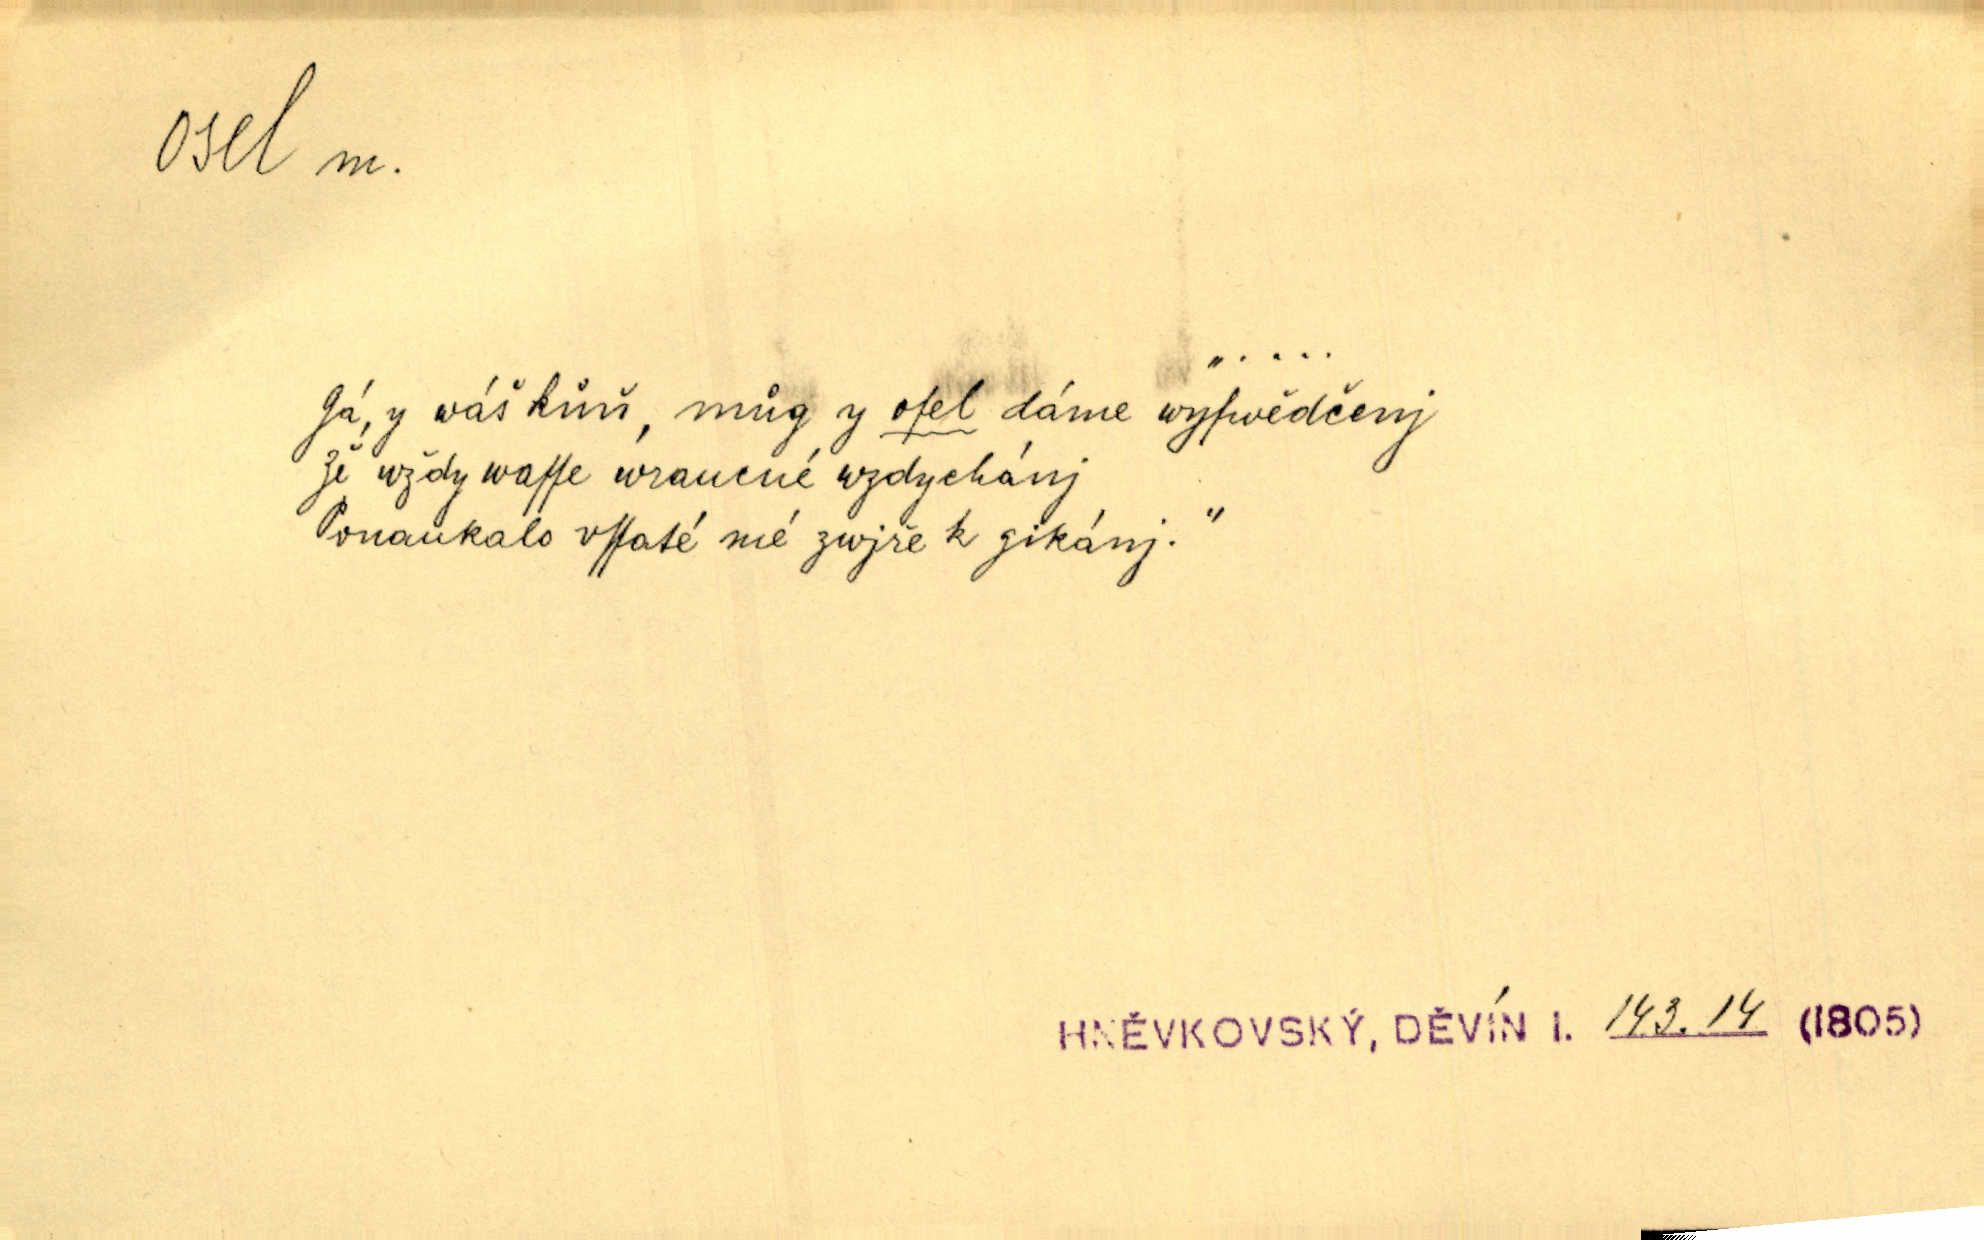 osel m.
„. . . .
Gá, y wáš kůň, můg y oſel dáme wyſwědčenj
Žě wždy waſſe wraucné wzdychánj
Ponaukalo vſſaté mé zwjře k gikánj.“
HNĚVKOVSKÝ, DĚVÍN I. 143. 14 (1805)